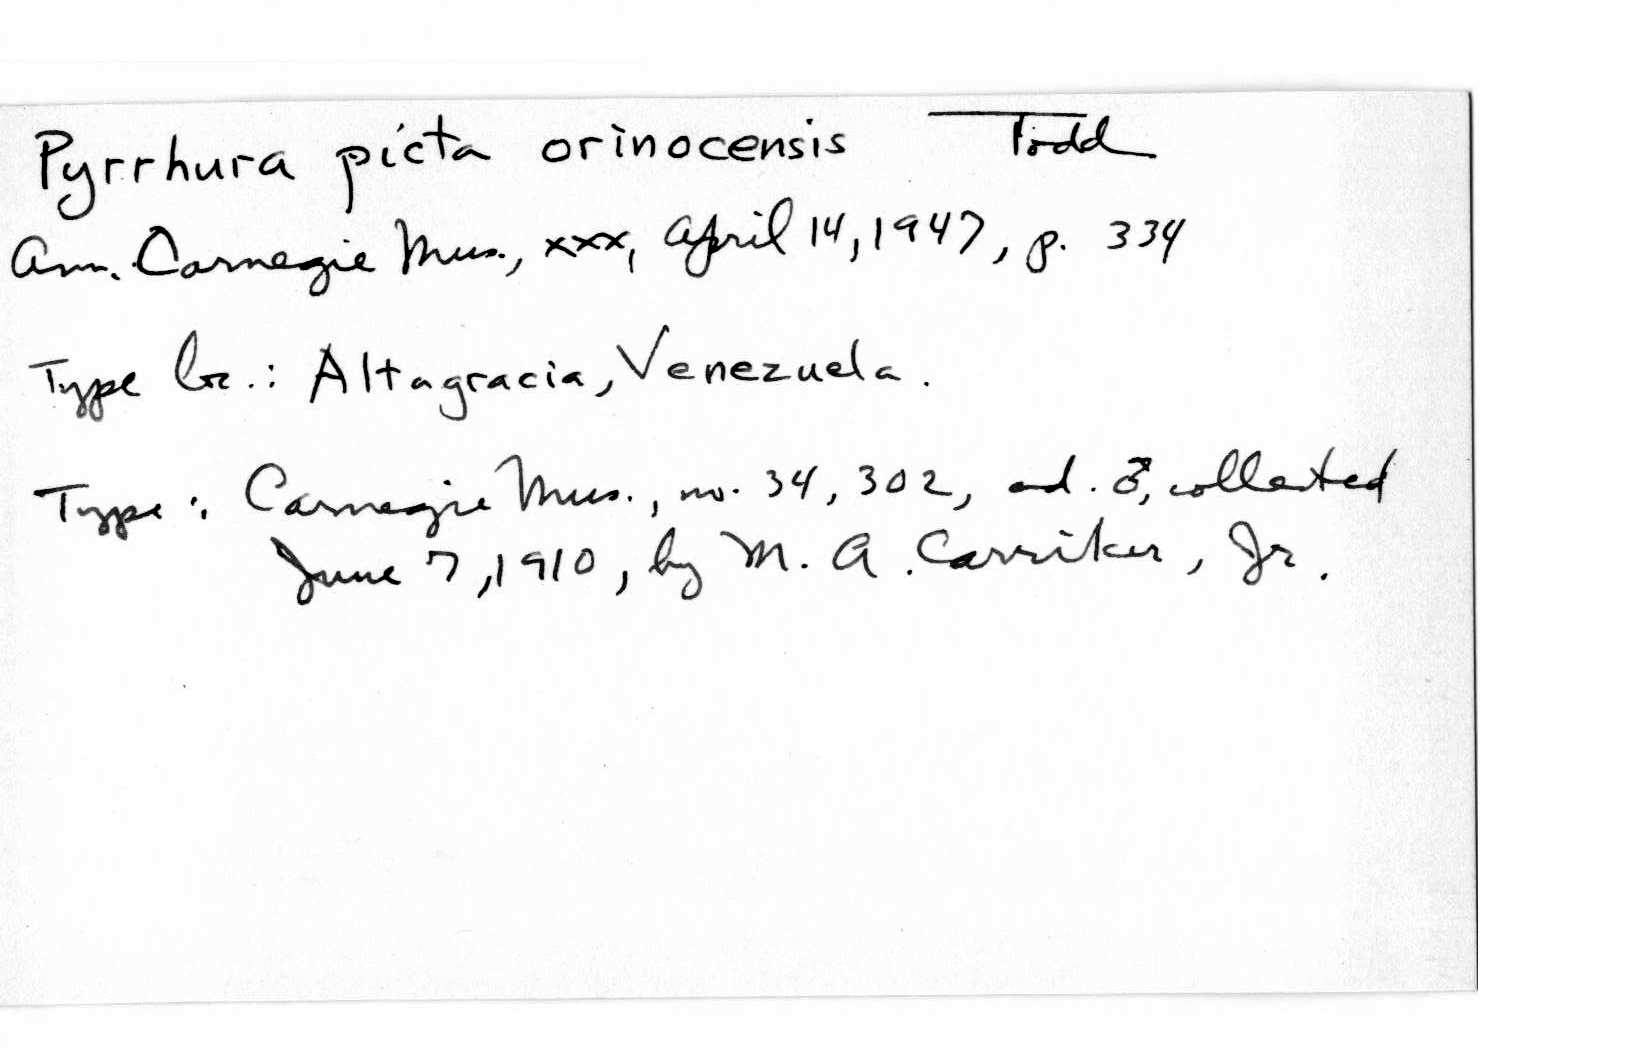 Pyrrhura picta orinocensis Todd
Ann. Carnegie Mus., xxx, April 14, 1947, p. 334
Type loc.: Altagracia, Venezuela.
Type: Carnegie Mus., no. 34,302, ad. ♂, collected
June 7, 1910, by M. A. Carriker, Jr.